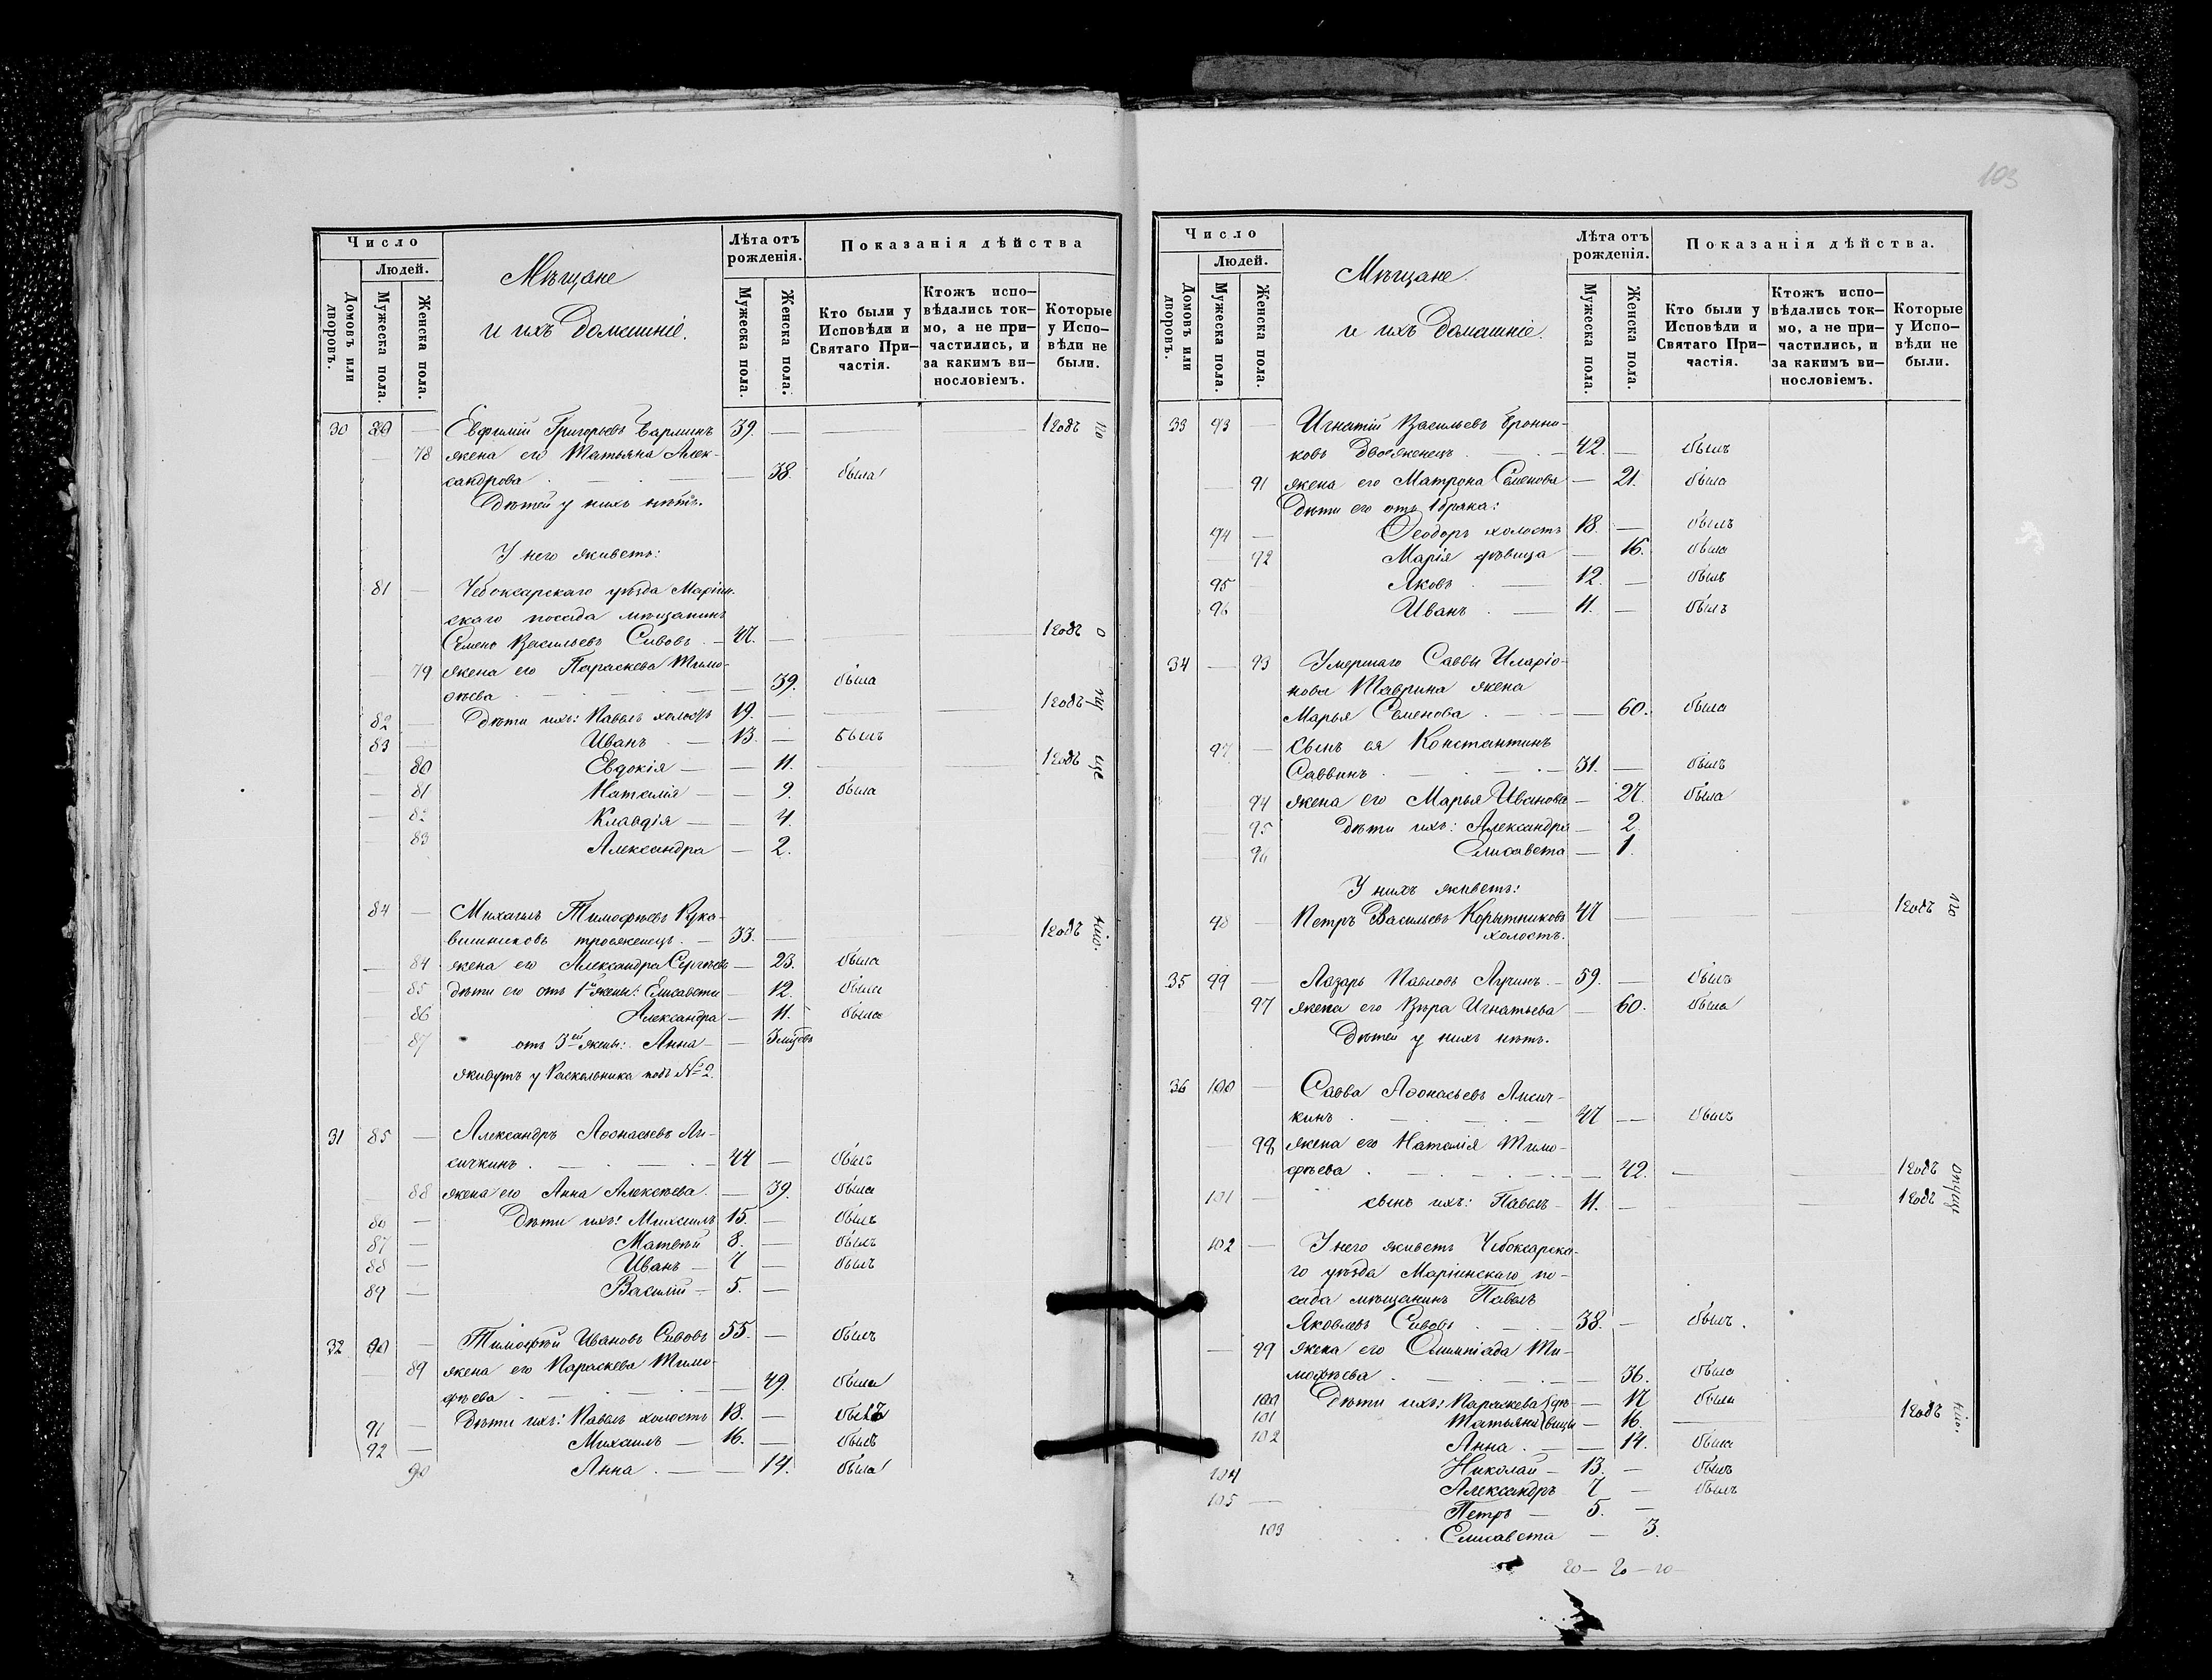 Число
Людей.
Домовъ или дворовъ.
Мужеска пола.
Женска пола.
Мѣщане
и ихъ домашніе.
Лѣта отъ рожденія.
Мужеска пола.
Женска пола.
Показанія дѣйства
Кто были у Исповѣди и Святаго При-частія.
Ктожъ испо-вѣдались ток-мо, а не при-частились, и за какимъ ви-нословіемъ.
Которые у Испо-вѣди не были.
30 — Евфимій Григорьевъ 39. — 1 годъ по
78 жена его Татьяна Алек-
сандрова — 38. была
Дѣтей у нихъ нѣтъ.
У него живетъ:
81 — Чебоксарскаго уѣзда Маріин-
скаго посада мѣщанинъ
Семенъ Васильевъ Сивовъ — 47. — 1 годъ о
79 жена его Параскева Тимо-
ѳѣева — 39. была
82 — Дѣти ихъ: Павелъ холостъ 19. — 1 годъ пу
83 — Иванъ — 13. — былъ
80 Евдокія — 11. — 1 годъ ще
81 Наталія — 9. была
82 Клавдія — 4.
83 Александра — 2.
84 — Михаилъ Тимофѣевъ Рука-
вишниковъ троеженецъ — 33. — 1 годъ нію.
84 жена его Александра Сергѣева — 23. была
85 дѣти его отъ 1й жены: Елисавета — 12. была
86 Александра — 11. была
87 отъ 3ей жены: Анна — 3 мѣсяц
живутъ у Раскольника подъ № 2.
31 85 — Александръ Аѳонасьевъ Ли-
сичкинъ — 44 — былъ
88 жена его Анна Алексѣева — 39. была
86 — Дѣти ихъ: Михаилъ 15. — былъ
87 — Матвѣй 8. — былъ
88 — Иванъ — 7 — былъ
89 — Василій — 5. —
32 90 — Тимофѣй Ивановъ Сивовъ 55. — былъ
89 жена его Параскева Тимо-
фѣева — 49. была
91 — Дѣти ихъ: Павелъ холостъ 18. — былъ
92 — Михаилъ — 16. — былъ
90 Анна — 14. была
103
Число
Людей.
Домовъ или дворовъ.
Мужеска пола.
Женска пола.
Мѣщане
и ихъ домашніе.
Лѣта отъ рожденія.
Мужеска пола.
Женска пола.
Показанія дѣйства.
Кто были у Исповѣди и Святаго При-частія.
Ктожъ испо-вѣдались ток-мо, а не при-частились, и за какимъ ви-нословіемъ.
Которые у Испо-вѣди не были.
33 93 — Игнатій Васильевъ Бронни-
ковъ двоеженецъ — 42. — былъ
91 жена его Матрона Семенова — 21. была
Дѣти его отъ 1 брака:
94 — Ѳеодоръ холостъ 18. — былъ
92 Марія дѣвица — 16. была
95 — Яковъ — 12. — былъ
96 — Иванъ — 11. — былъ
34 — 93 Умершаго Саввы Иларіо-
нова Таврина жена
Марья Семенова — 60. была
97 — Сынъ ея Константинъ
Саввинъ — 31. — былъ
94 жена его Марья Иванова — 27. была
95 дѣти ихъ: Александра — 2.
96 Елисавета — 1.
У нихъ живетъ:
98 — Петръ Васильевъ Корытниковъ 47 — 1 годъ по
холостъ.
35 99 — Лазарь Павловъ Лучинъ — 59. — былъ
97 жена его Вѣра Игнатьева — 60. была
Дѣтей у нихъ нѣтъ.
36 100 — Савва Аѳонасьевъ Лисич-
кинъ — 47 — былъ
98 жена его Наталія Тимо-
фѣева — 42. — 1 годъ опущ
101 — сынъ ихъ: Павелъ — 11. — 1 годъ
102 — У него живетъ Чебоксарска-
го уѣзда Маріинскаго по-
сада мѣщанинъ Павелъ
Яковлевъ Сивовъ — 38. — былъ.
99 жена его Олимпіада Ти-
мофѣева — 36. была
100 Дѣти ихъ: Параскева (дѣ- — 17 была
101 Татьяна (вицы — 16. — 1 годъ нію.
102 Анна — 14. была
104 Николай — 13. — былъ
105 — Александръ 7 — былъ
Петръ — 5. —
103 Елисавета — 3.
20 — 20 — 10